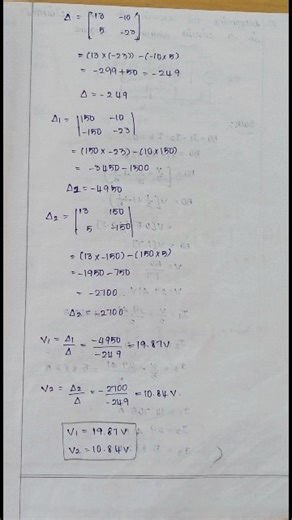 Δ = |13 -10|
|5 -23|
= (13 x (-23)) - (-10 x 5)
= -299 + 50 = -249
Δ = -249
Δ1 = |150 -10|
|-150 -23|
= (150 x -23) - (10 x 150)
= -3450 - 1500
Δ2 = -4950
Δ2 = |13 150|
|5 -150|
= (13 x -150) - (150 x 5)
= -1950 - 750
= -2700
Δ2 = -2700
V1 = Δ1/Δ = -4950/-249 = 19.87V
V2 = Δ2/Δ = -2700/-249 = 10.84 V.
V1 = 19.87 V.
V2 = 10.84V.